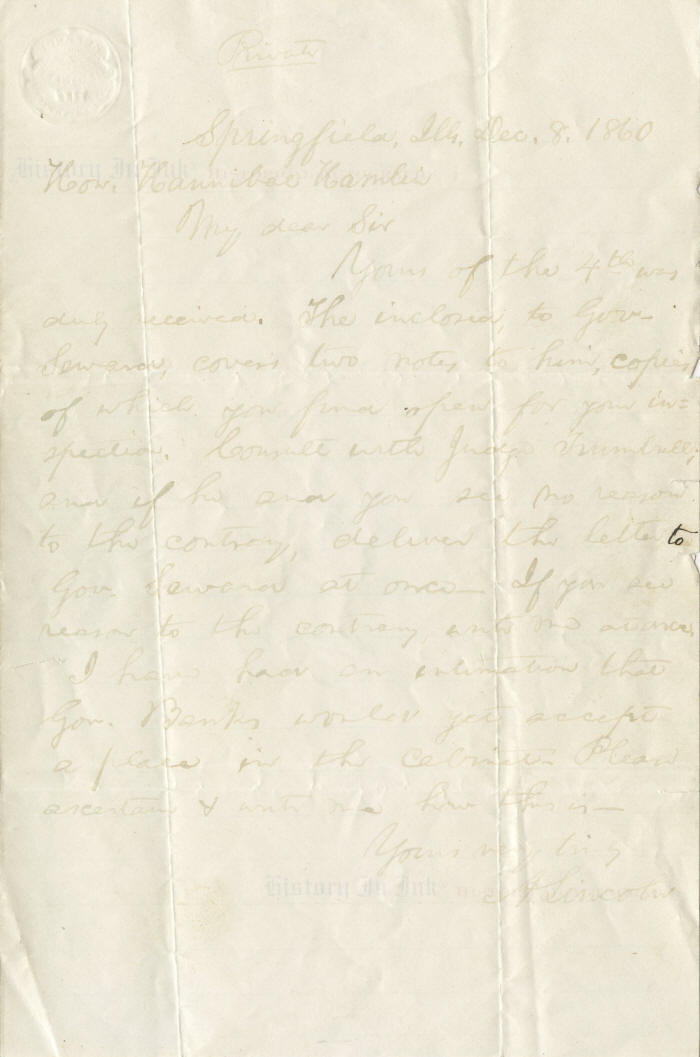 Private
Springfield, Ills. Dec. 8. 1860
Hon. Hannibal Hamlin
My dear Sir
Yours of the 4th was
duly received. The inclosed, to Gov.
Seward, covers two notes to him, copies
of which you find open for your in=
spection. Consult with Judge Trumbull;
and if he and you see no reason
to the contrary, deliver the letter to
Gov. Seward at once. If you see
reason to the contrary, write me at once.
I have had an intimation that
Gov. Banks would yet accept
a place in the cabinet. Please
ascertain & write me how this is.
Yours very truly
A. Lincoln
History In Ink
History In Ink